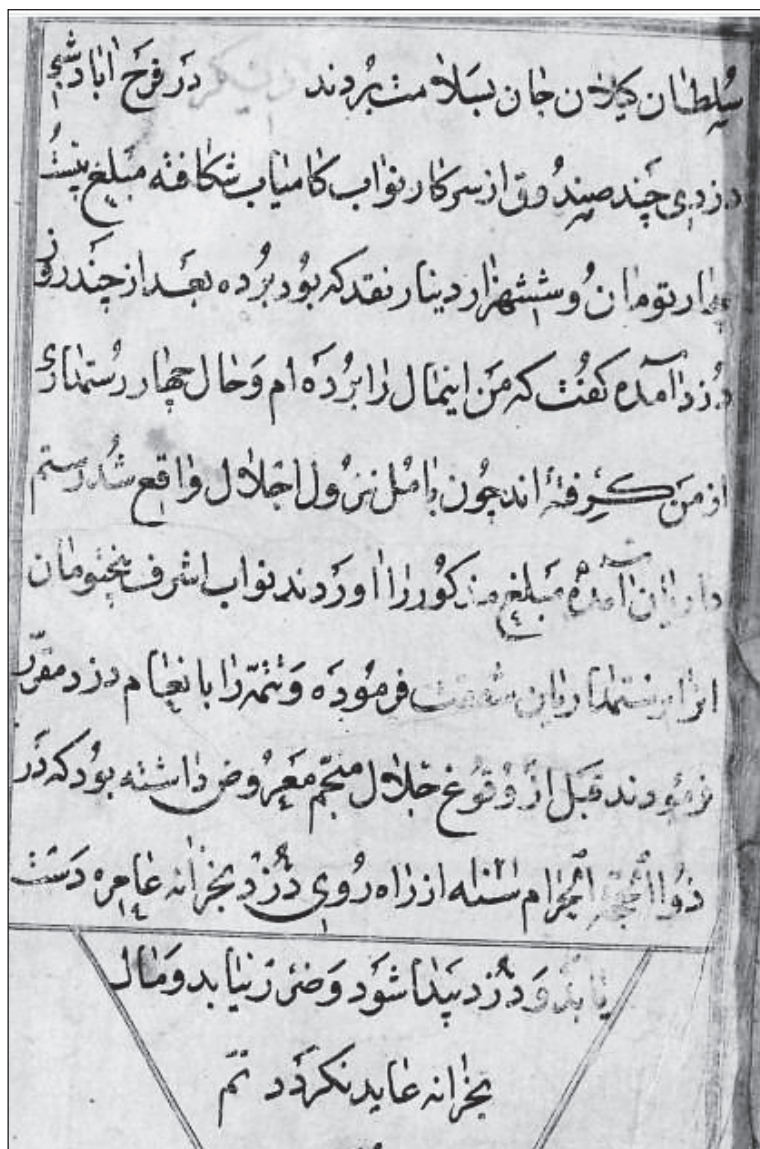 سلطان کیلان جان بسلامت بردند دیکر در فرح اباد شبی
دزدی چند صندوق از سرکار نواب کامیاب شکافته مبلغ بیست
چهار تومان و ششهزار دینار نقد که بود برده بعد از چند روز
دزد آمده کفت که من اینمال را برده ام و حال چهار رستمداری
از من کرفته اند چون بامل نزول اجلال واقع شد رستم
داریان آمده مبلغ مذکور را اوردند نواب اشرف پنجتومان
انرا برستمداریان شفقت فرموده و تتمه را بانعام دزد مقرر
فرمودند قبل از وقوع جلال منجم معروض داشته بود که در
ذوالحجة الحرام سنه از راه روی دزد بخزانه عامره دست
یابد و دزد پیدا شود و ضرر نیابد و مال
بخزانه عاید نکردد تم